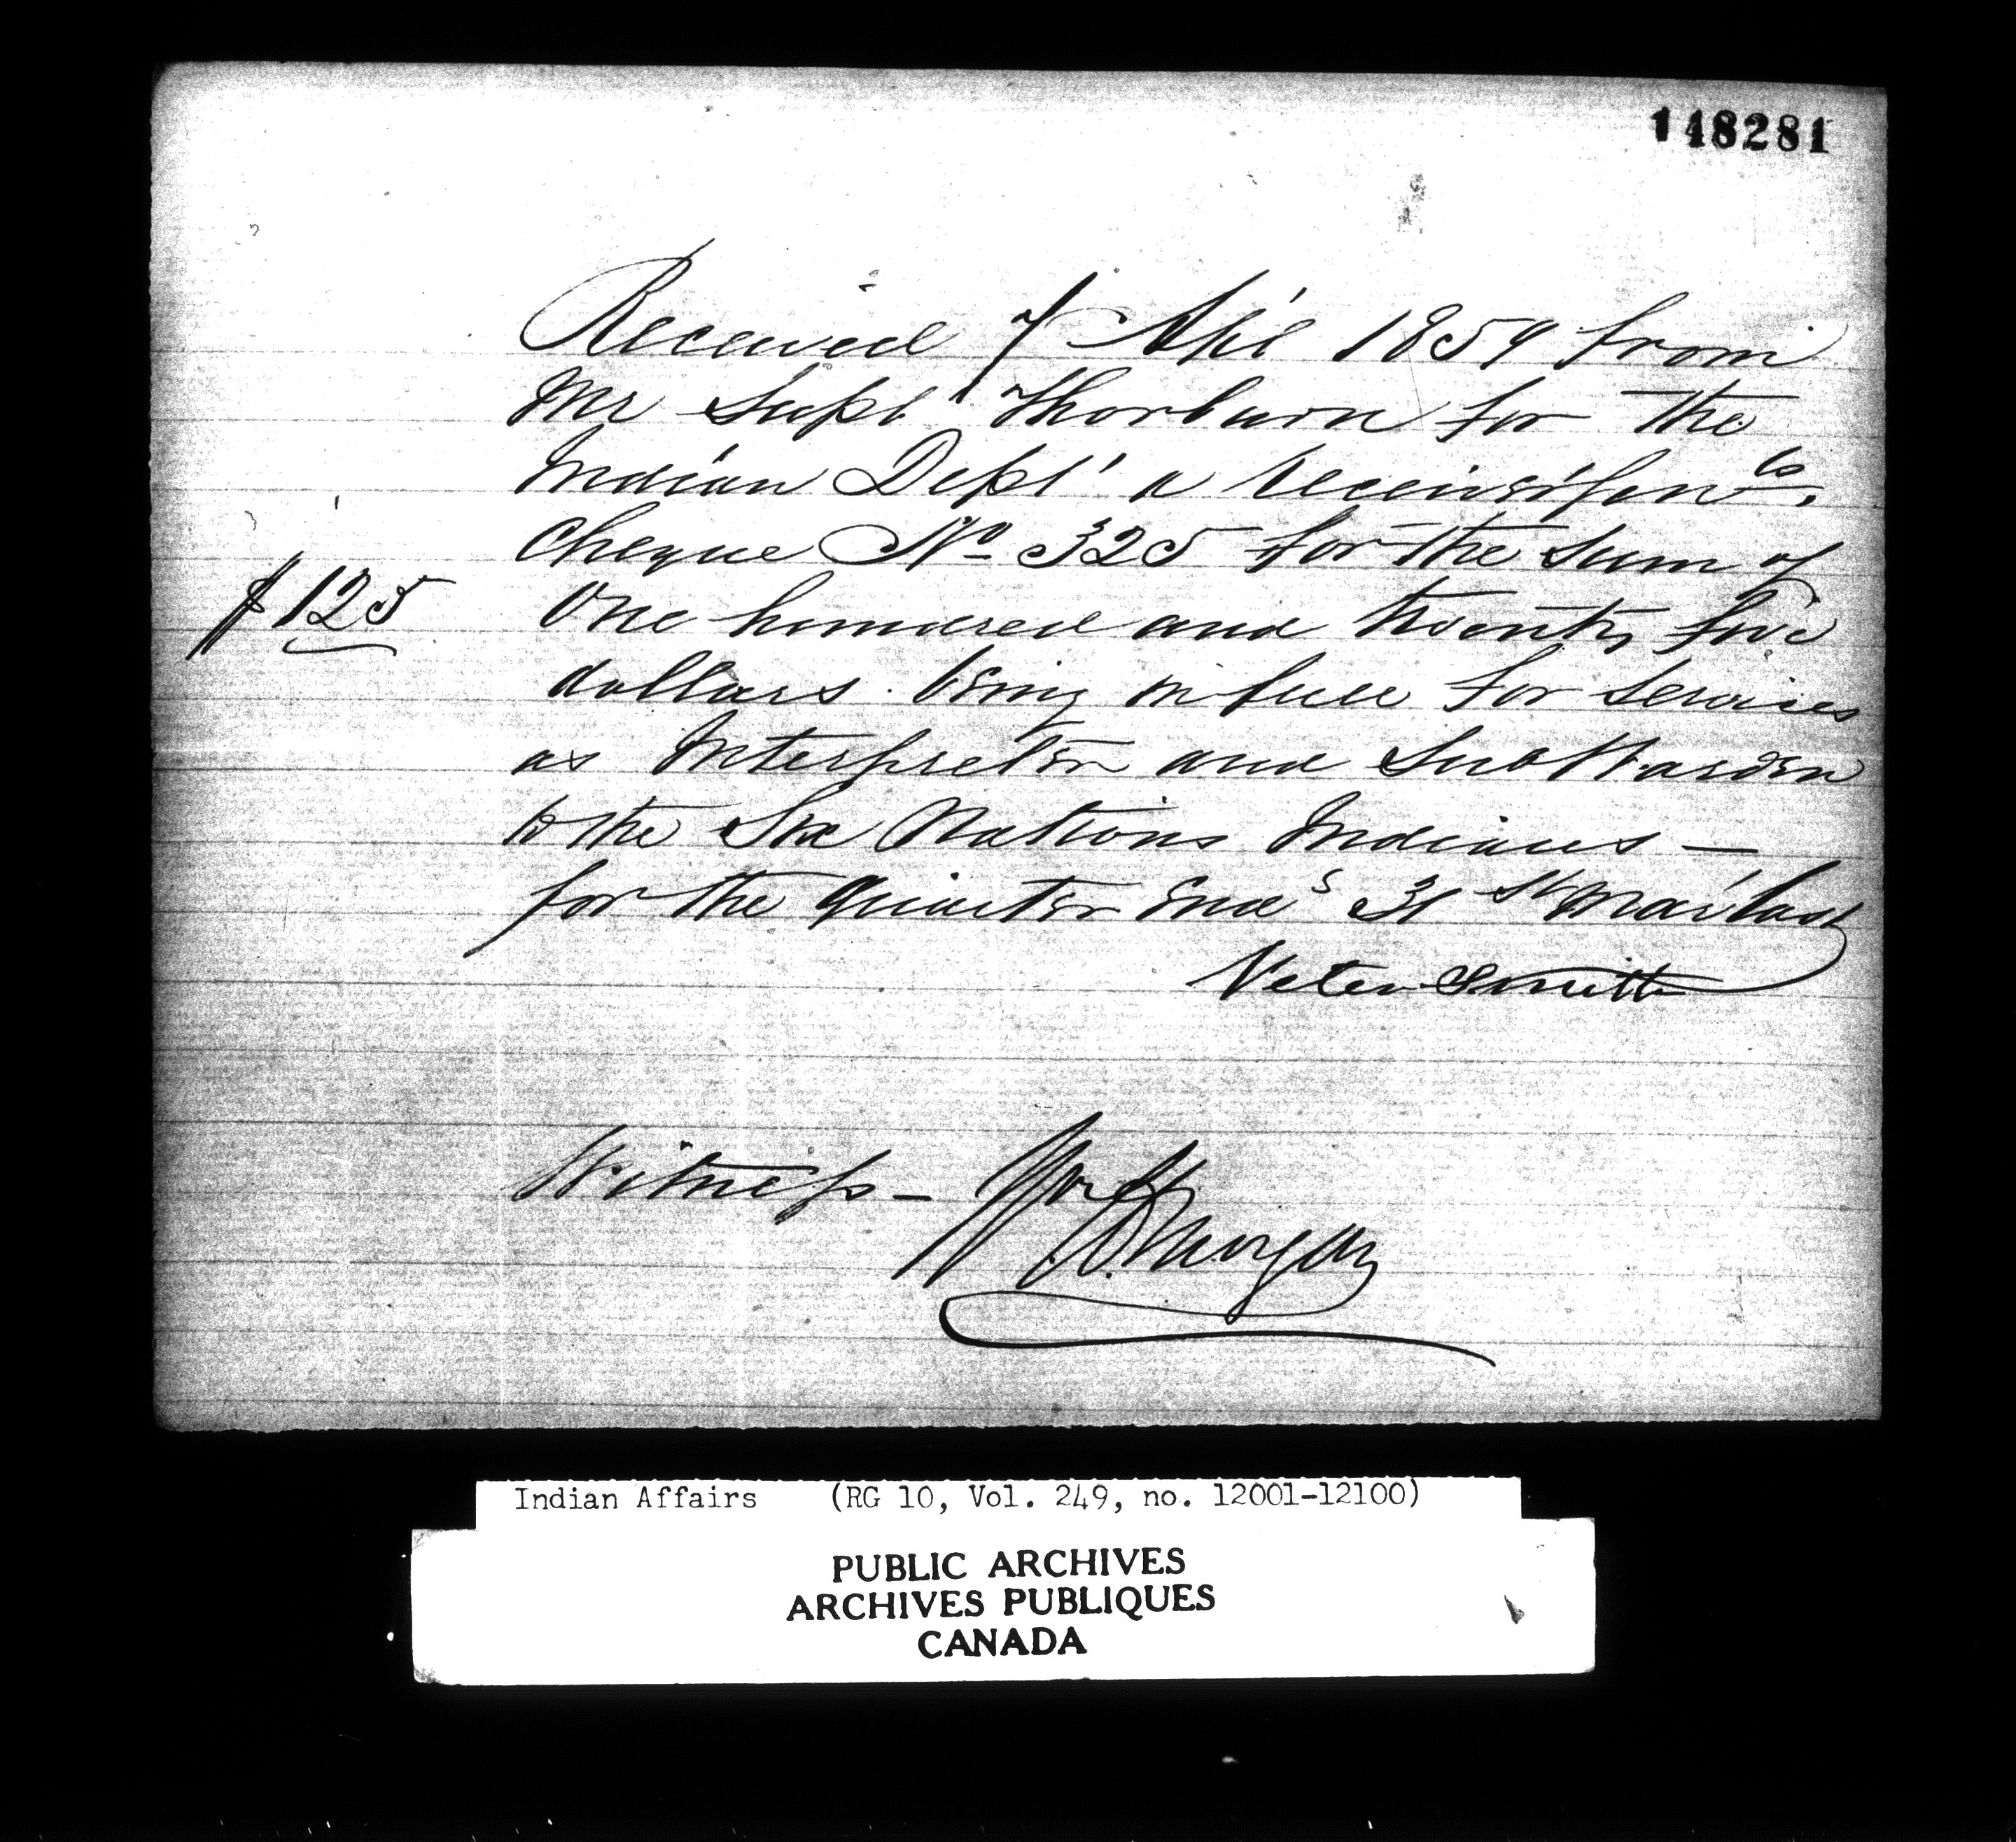 148281
Received 7 Apl 1859 from
Mr Supt Thorburn for the
Indian Dept a Receiver Genls
Cheque No 325 for the Sum of
$125 One hundred and twenty five
dollars. being in full for Services
as Interpreter and Sub Warden
to the Six Nations Indians —
for the quarter Ends 31st Mar last
Peter Smith
Witness — Wm H. Morgan
Indian Affairs (RG 10, Vol. 249, no. 12001-12100)
PUBLIC ARCHIVES
ARCHIVES PUBLIQUES
CANADA